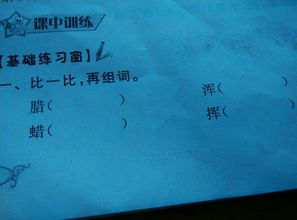 课中训练
【基础练习窗】
一、比一比,再组词。
腊( ) 浑( )
蜡( ) 挥( )